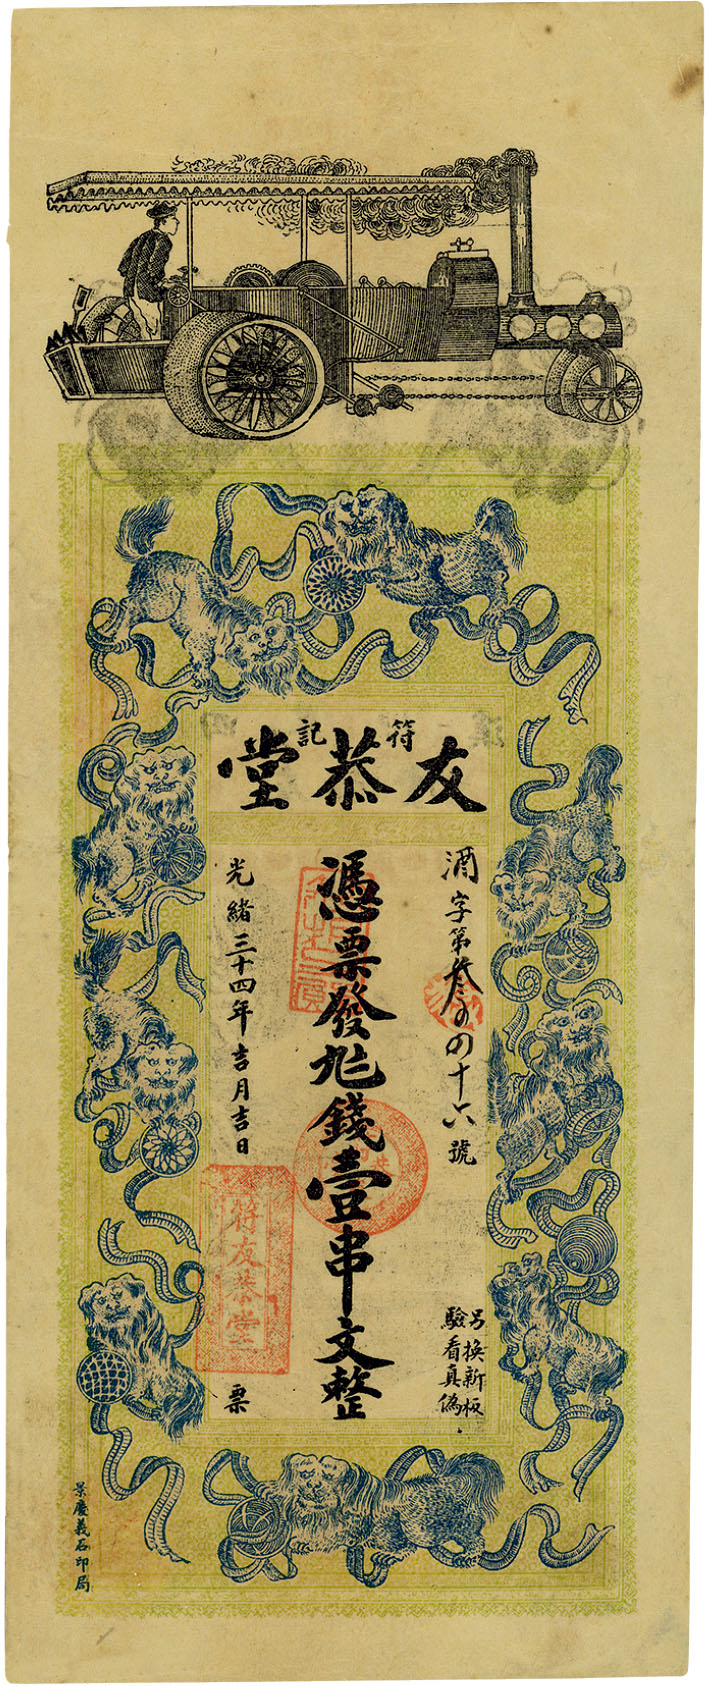 符記
友恭堂
酒字第叁百四十六號
另換新板
驗看真偽
憑票發九八錢壹串文整
光緒三十四年吉月吉日
票
符友恭堂
景慶義石印局